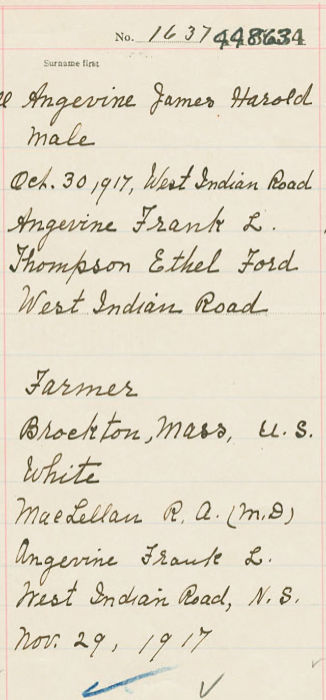 No. 1637 448634
Surname first
Angevine James Harold
Male
Oct. 30, 1917, West Indian Road
Angevine Frank L.
Thompson Ethel Ford
West Indian Road
Farmer
Brockton, Mass, U.S.
White
MacLellan R. A. (M.D)
Angevine Frank L.
West Indian Road, N.S.
Nov. 29, 1917